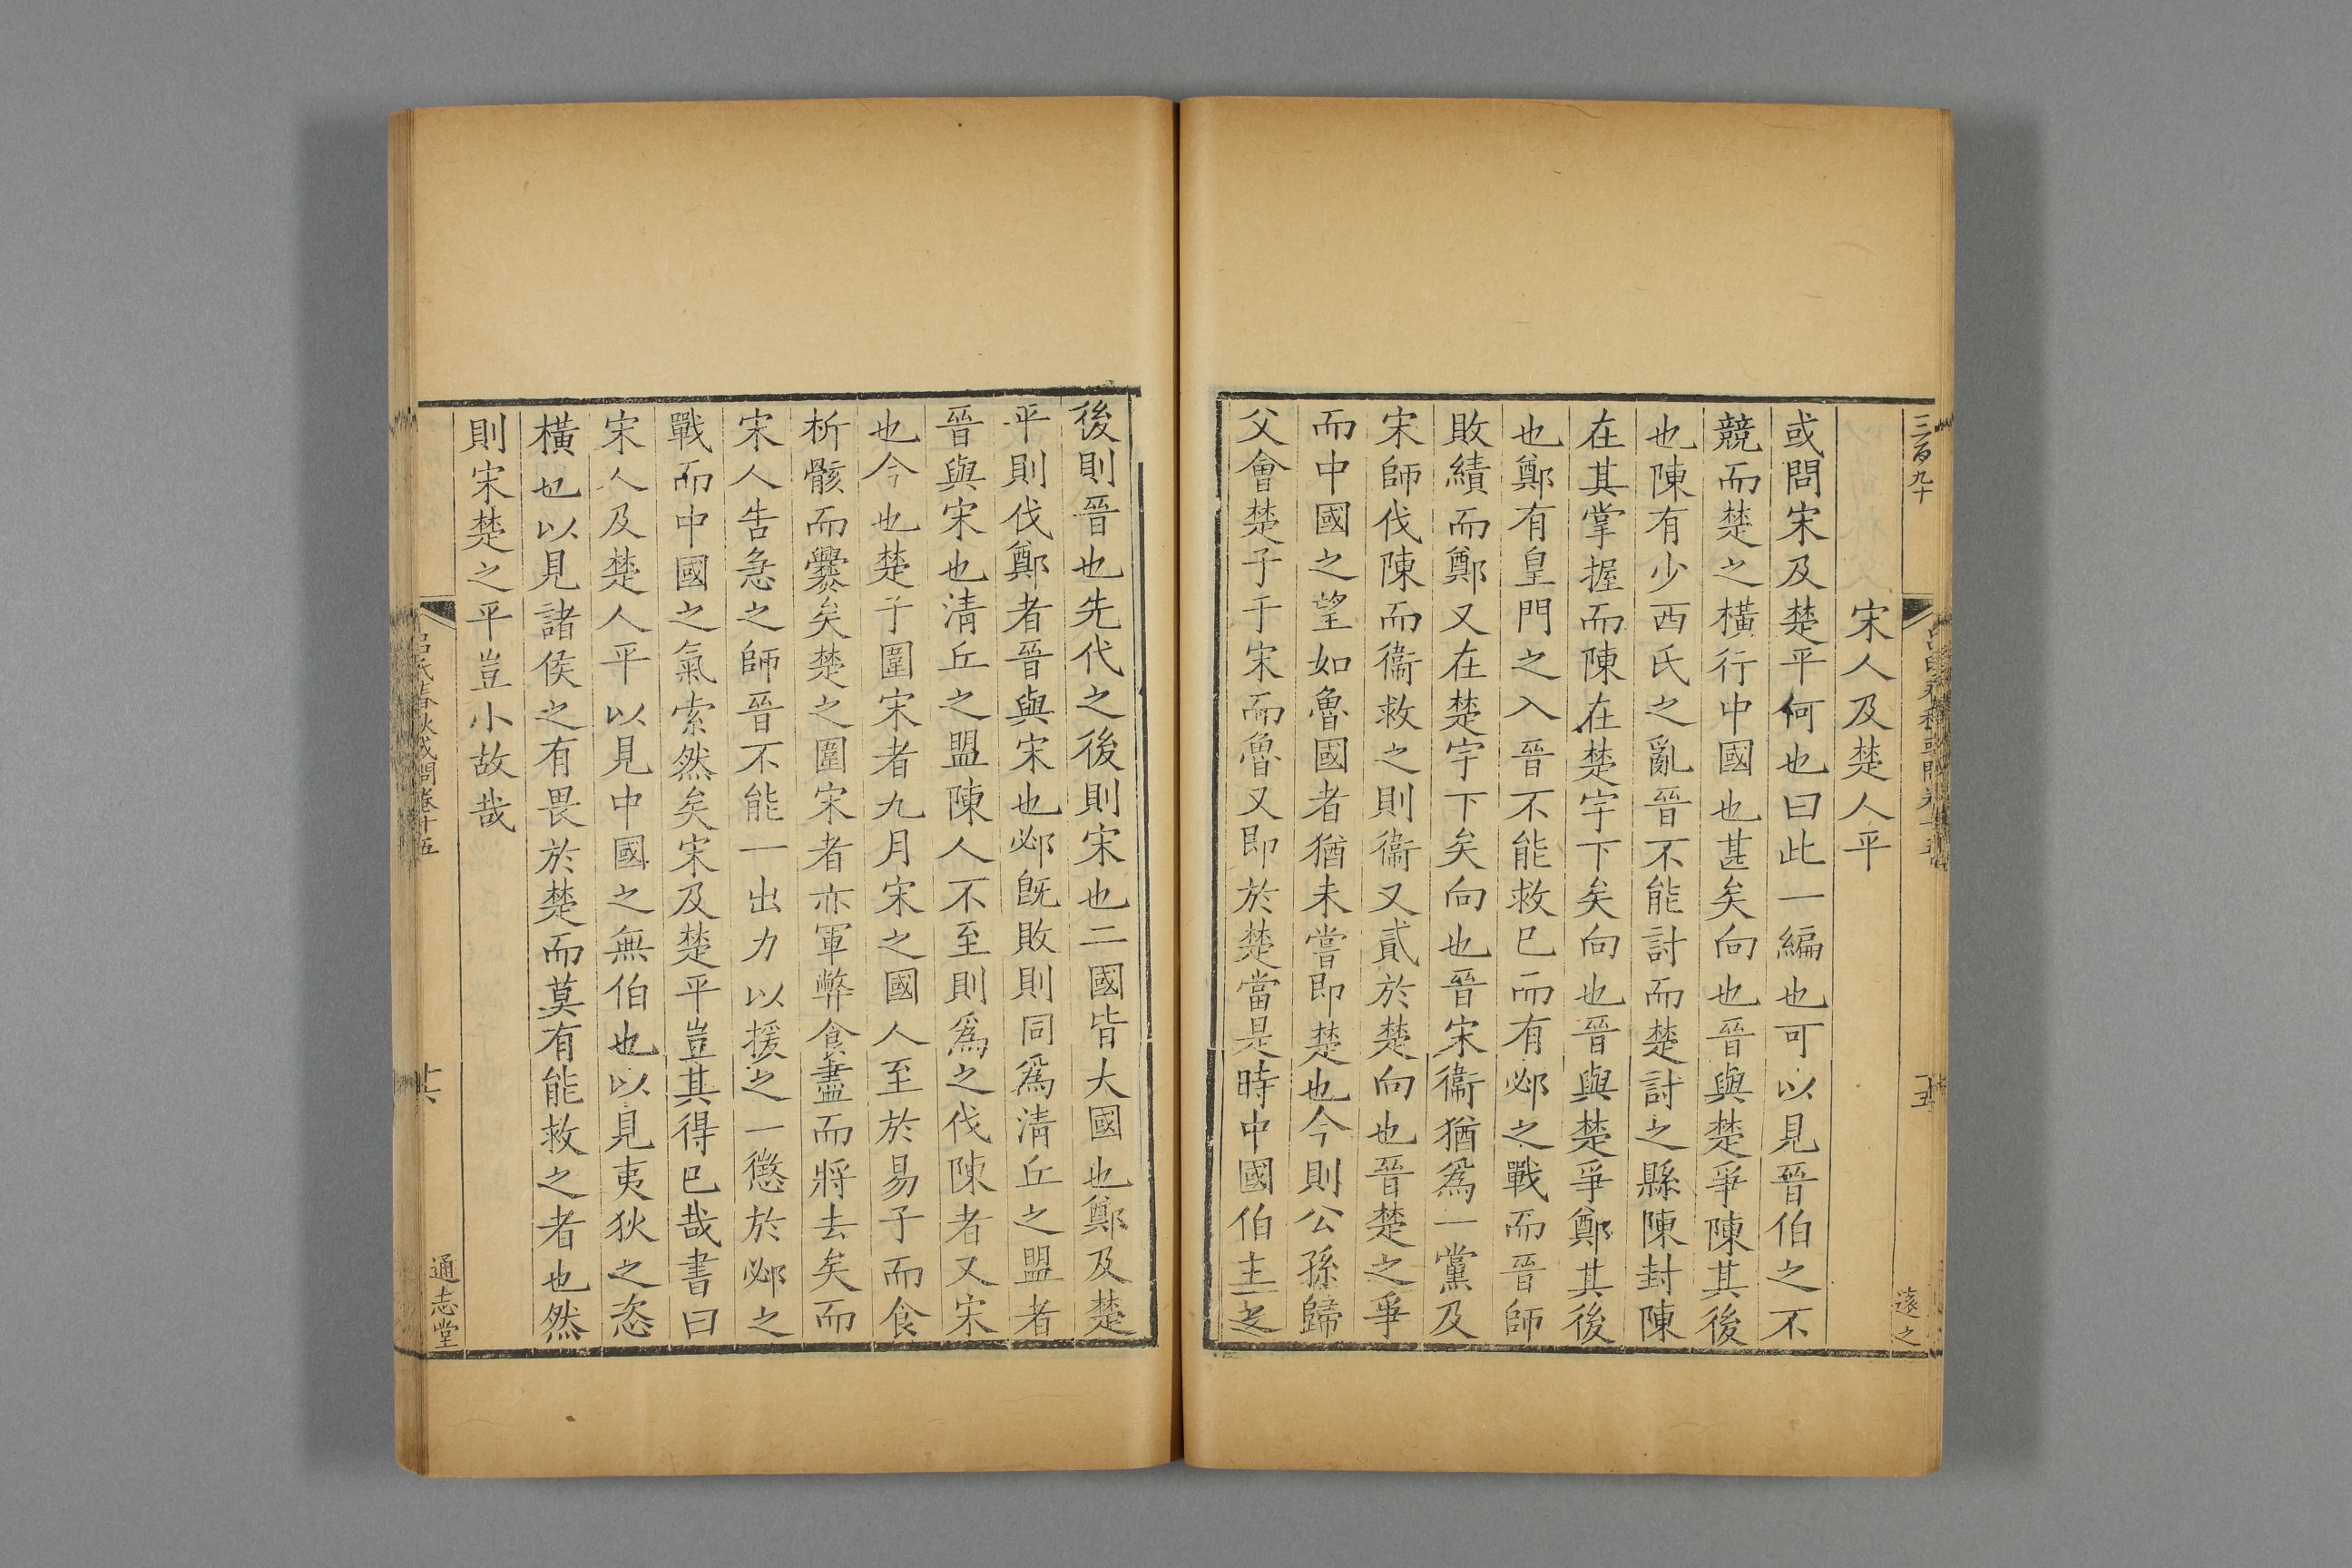 三百九十
遠之
宋人及楚人平
或問宋及楚平何也曰此一編也可以見晉伯之不
競而楚之橫行中國也甚矣向也晉與楚爭陳其後
也陳有少西氏之亂晉不能討而楚討之縣陳封陳
在其掌握而陳在楚宇下矣向也晉與楚爭鄭其後
也鄭有皇門之入晉不能救巳而有邲之戰而晉師
敗績而鄭又在楚宇下矣向也晉宋衞猶爲一黨及
宋師伐陳而衞救之則衞又貳於楚向也晉楚之爭
而中國之望如魯國者猶未嘗即楚也今則公孫歸
父會楚子于宋而魯又即於楚當是時中國伯主之
後則晉也先代之後則宋也二國皆大國也鄭及楚
平則伐鄭者晉與宋也邲旣敗則同爲清丘之盟者
晉與宋也清丘之盟陳人不至則爲之伐陳者又宋
也今也楚子圍宋者九月宋之國人至於易子而食
析骸而爨矣楚之圍宋者亦軍弊食盡而將去矣而
宋人告急之師晉不能一出力以援之一懲於邲之
戰而中國之氣索然矣宋及楚平豈其得巳哉書曰
宋人及楚人平以見中國之無伯也以見夷狄之恣
橫也以見諸侯之有畏於楚而莫有能救之者也然
則宋楚之平豈小故哉
呂氏春秋或問卷十五
十六
通志堂